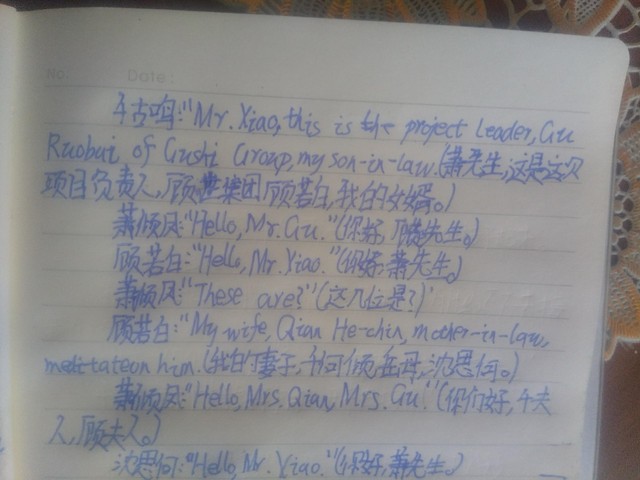 No:        Date:
千古鸣:"Mr. Xiao, this is the project leader, Gu
Ruobai, of Gushi Group, my son-in-law.(萧先生,这是这次
项目负责人,顾世集团顾若白,我的女婿。)
萧倾风:"Hello, Mr. Gu."(你好,顾先生。)
顾若白:"Hello, Mr. Xiao."(你好,萧先生。)
萧倾风:"These are?"(这几位是?)
顾若白:"My wife, Qian He-chin, mother-in-law,
meditateon him.(我的妻子,千何倾,岳母,沈思何。)
萧倾风:"Hello, Mrs. Qian, Mrs. Gu."(你们好,千夫
人,顾夫人。)
沈思何:"Hello, Mr. Xiao."(你好,萧先生。)